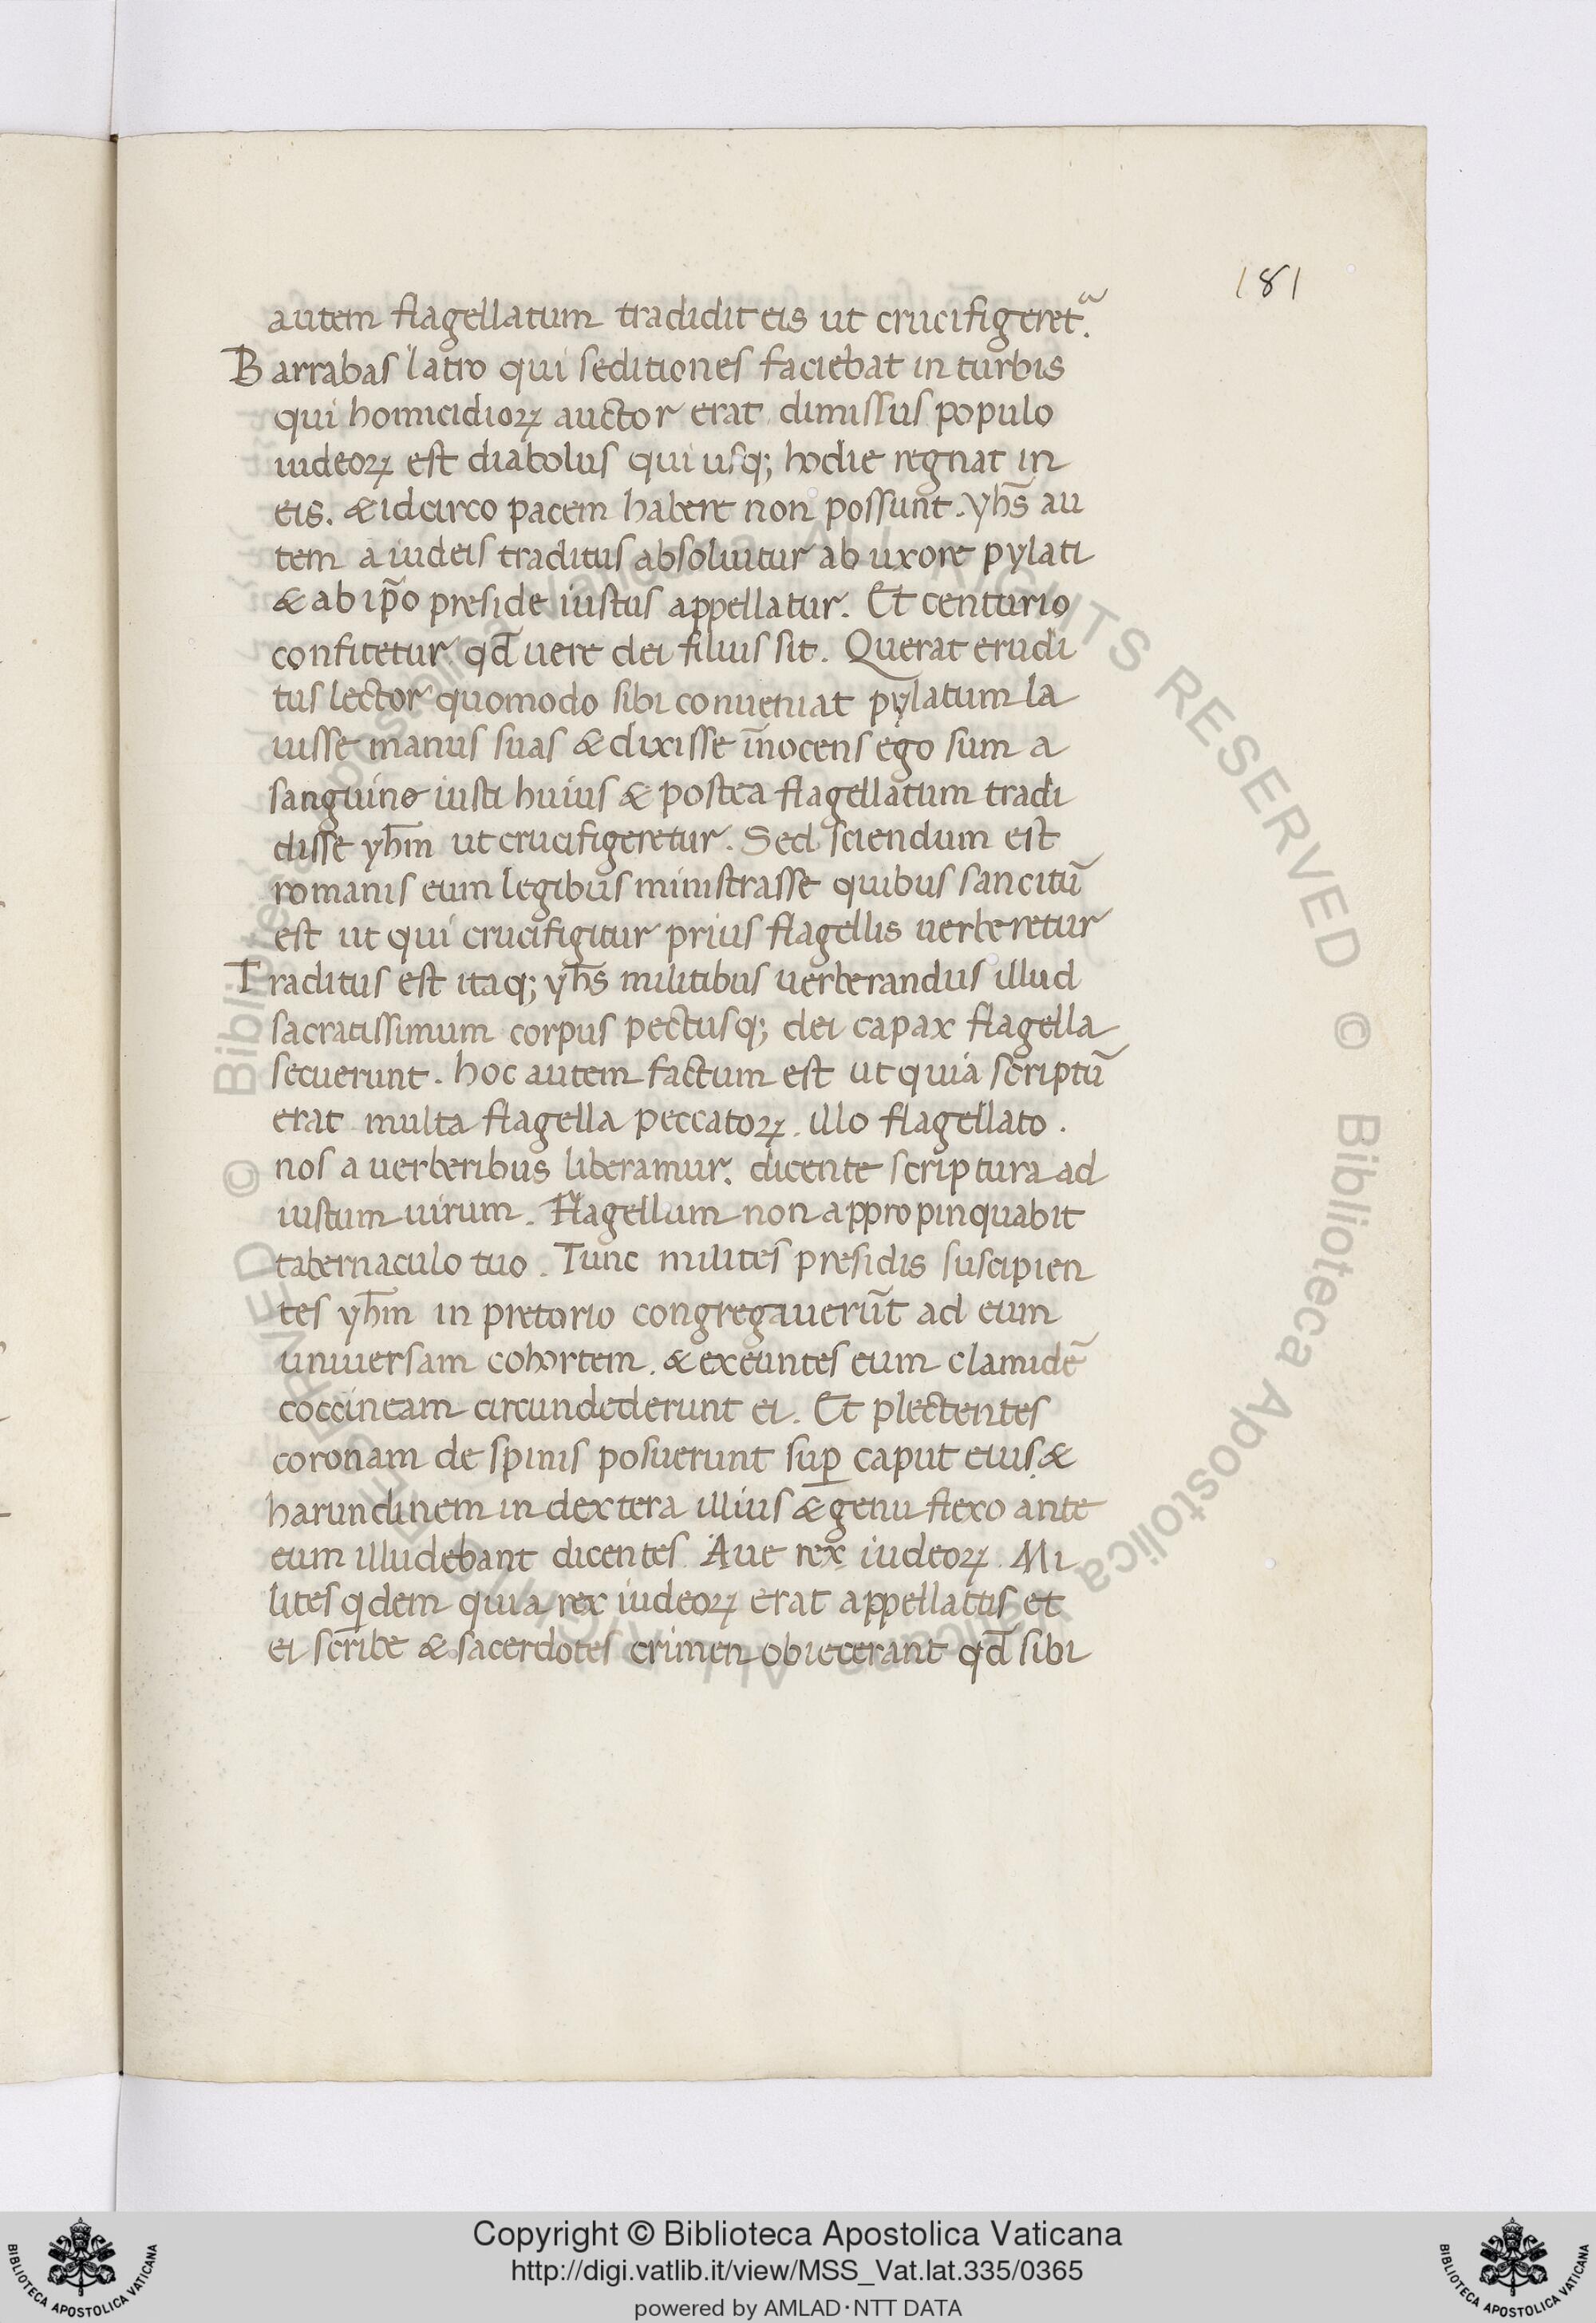 181
autem flagellatum tradidit eis ut crucifigeret᷑.
Barrabas latro qui seditiones faciebat in turbis
qui homicidioꝝ auctor erat dimissus populo
iudeoꝝ est diabolus qui usq; hodie regnat in
eis. & idcirco pacem habere non possunt. yhs̄ au
tem a iudeis traditus absoluitur ab uxore pylati
& ab ip̄o preside iustus appellatur. Et centurio
confitetur qd̄ uere dei filius sit. Querat erudi
tus lector quomodo sibi conueniat pylatum la
uisse manus suas & dixisse īnocens ego sum a
sanguine iusti huius & postea flagellatum tradi
disse yhm̄ ut crucifigeretur. Sed sciendum est
romanis eum legibus ministrasse quibus sancitū
est ut qui crucifigitur prius flagellis uerberetur
Traditus est itaq; yhs̄ militibus uerberandus illud
sacratissimum corpus pectusq; dei capax flagella
secuerunt. hoc autem factum est ut quia scriptū
erat multa flagella peccatoꝝ. illo flagellato.
nos a uerberibus liberamur. dicente scriptura ad
iustum uirum. Flagellum non appropinquabit
tabernaculo tuo. Tunc milites presidis suscipien
tes yhm̄ in pretorio congregauerūt ad eum
uniuersam cohortem. & exeuntes eum clamidē
coccineam circundederunt ei. Et plectentes
coronam de spinis posuerunt suꝑ caput eius. &
harundinem in dextera illius & genu flexo ante
eum illudebant dicentes. Aue rex iudeoꝝ. Mi
lites qdem quia rex iudeoꝝ erat appellatus et
ei scribe & sacerdotes crimen obiecerant qd̄ sibi
© Biblioteca Apostolica Vaticana ALL RIGHTS RESERVED
Copyright © Biblioteca Apostolica Vaticana
http://digi.vatlib.it/view/MSS_Vat.lat.335/0365
powered by AMLAD・NTT DATA
BIBLIOTECA APOSTOLICA VATICANA
BIBLIOTECA APOSTOLICA VATICANA